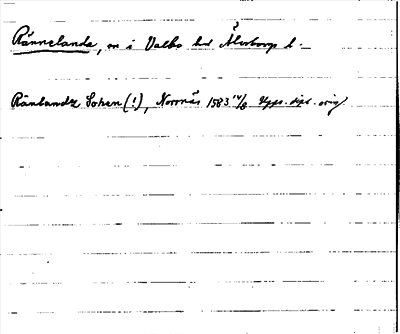 Rännelanda, sn i Valbo hd Älvsborgs l.
Ränlandz Sohen (!), Norrnäs 1583 14/8 Upps. dipl. orig.